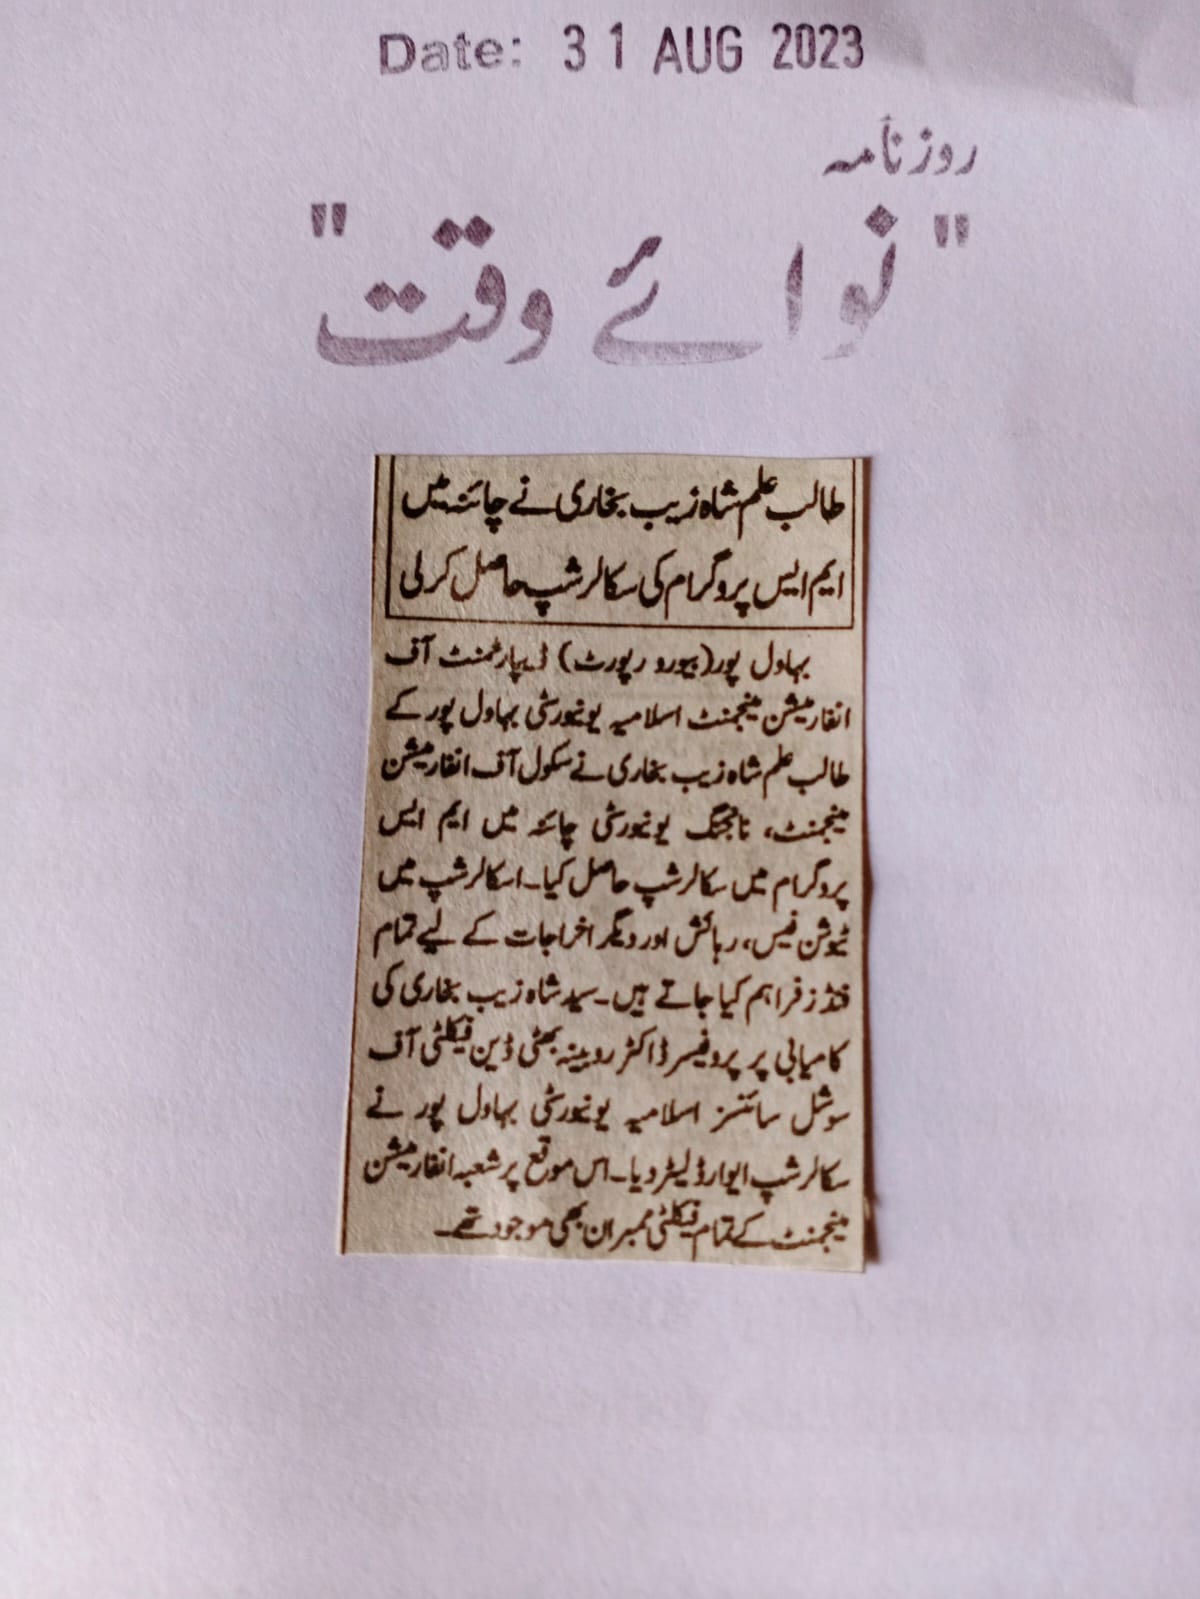 Date: 31 AUG 2023
روزنامہ
"نوائے وقت"
طالب علم شاہ زیب بخاری نے چائنہ میں
ایم ایس پروگرام کی سکالرشپ حاصل کرلی
بہاول پور(بیورو رپورٹ) ڈیپارٹمنٹ آف
انفارمیشن مینجمنٹ اسلامیہ یونیورسٹی بہاول پور کے
طالب علم شاہ زیب بخاری نے سکول آف انفارمیشن
مینجمنٹ، نانجنگ یونیورسٹی چائنہ میں ایم ایس
پروگرام میں سکالرشپ حاصل کیا۔اسکالرشپ میں
ٹیوشن فیس، رہائش اور دیگر اخراجات کے لیے تمام
فنڈز فراہم کیا جاتے ہیں۔سید شاہ زیب بخاری کی
کامیابی پر پروفیسر ڈاکٹر روبینہ بھٹی ڈین فیکلٹی آف
سوشل سائنسز اسلامیہ یونیورسٹی بہاول پور نے
سکالرشپ ایوارڈ لیٹر دیا۔اس موقع پر شعبہ انفارمیشن
مینجمنٹ کے تمام فیکلٹی ممبران بھی موجود تھے۔